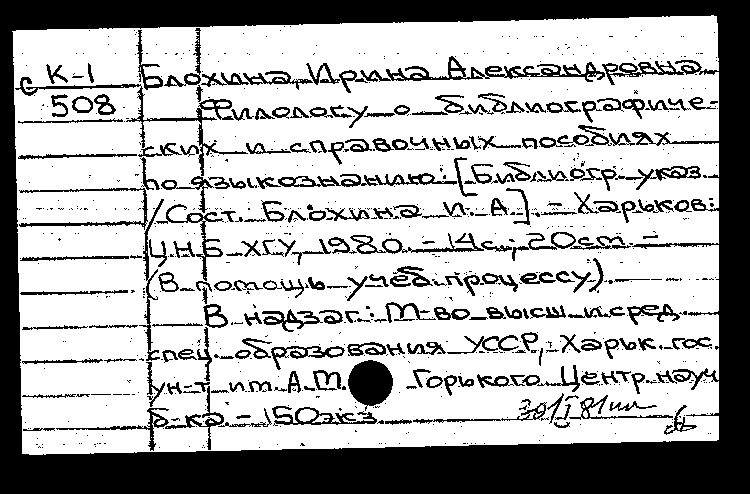 с К-1 Блохина, Ирина Александровна
508 Филологу о библиографиче-
ских и справочных пособиях
по языкознанию: [Библиогр. указ.
/Сост. Блохина И. А.]. - Харьков:
ЦНБ ХГУ, 1980. - 14с.; 20см. -
(В помощь учеб. процессу).
В надзаг.: М-во высш. и сред.
спец. образования УССР, Харьк. гос.
ун-т им. А.М. Горького. Центр. науч.
б-ка. - 150экз.